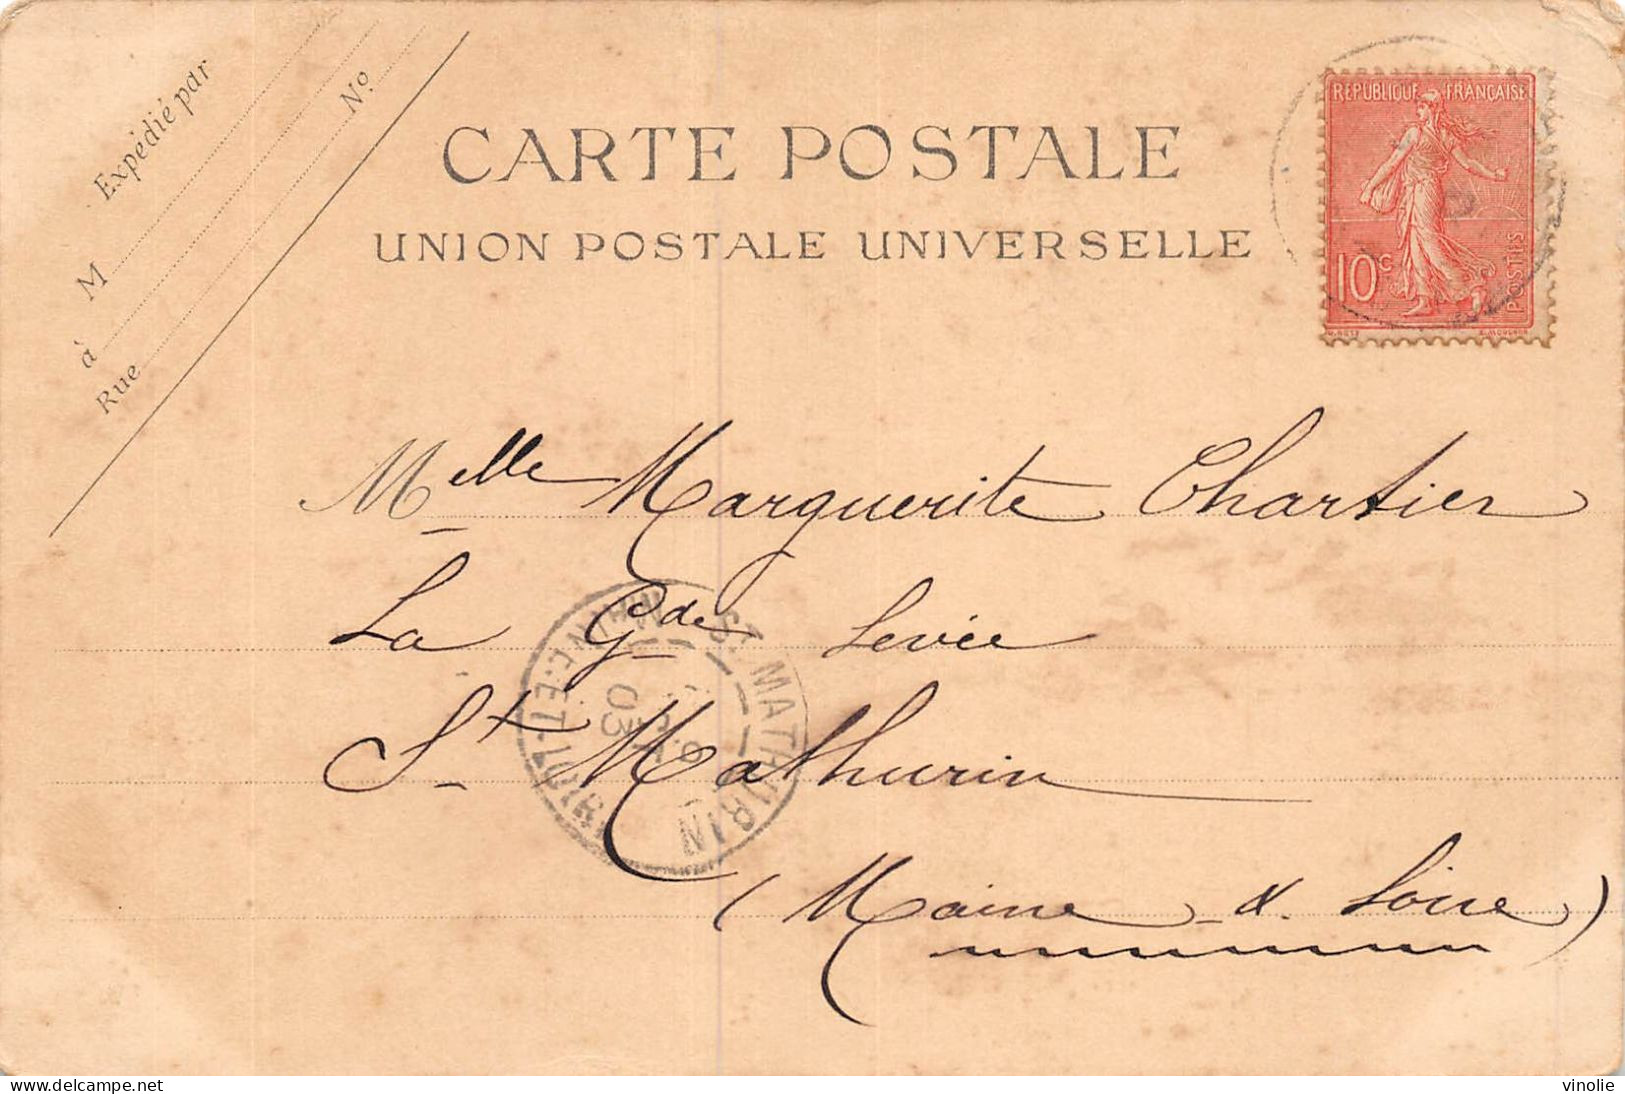 Expédié par
M
à
Rue
Nº
CARTE POSTALE
UNION POSTALE UNIVERSELLE
REPUBLIQUE FRANÇAISE
10c
POSTES
Melle Marguerite Chartier
La Gde Levée
St Mathurin
(Maine & Loire)
ST. MATHURIN
MAINE-ET-LOIRE
03
vinolie